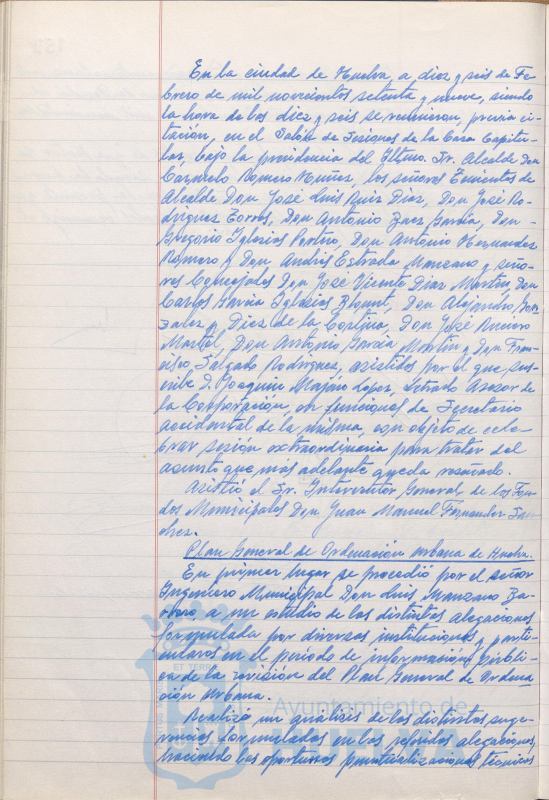 En la ciudad de Huelva, a diez y seis de Fe-
brero de mil novecientos setenta y nueve, siendo
la hora de las diez y seis se reunieron, previa ci-
tación, en el Salón de Sesiones de la Casa Capitu-
lar, bajo la presidencia del Iltmo. Sr. Alcalde Don
Carmelo Romero Núñez, los señores Tenientes de
Alcalde Don José Luis Ruiz Díaz, Don José Ro-
dríguez Torres, Don Antonio Baez García, Don
Gregorio Iglesias Don Antonio Hernández
Romero y Don Andrés Estrada Manzano y seño-
res Concejales Don José Vicente Díaz Martín, Don
Carlos García Iglesias Blount, Don Alejandro Gon-
zález y Diez de la Cortina, Don José Romero
Martel, Don Antonio García Martín y Don Fran-
cisco Salgado Rodríguez, asistidos por el que sus-
cribe D. Joaquín López, Letrado Asesor de
la Corporación, en funciones de Secretario
accidental de la misma, con objeto de cele-
brar sesión extraordinaria para tratar del
asunto que mas adelante queda reseñado.
Asistió el Sr. Interventor General de los Fon-
dos Municipales Don Juan Manuel Fernández Sán-
chez.
Plan General de Ordenación urbana de Huelva.
En primer lugar se procedió por el señor
Ingeniero Municipal Don Luis Manzano Ba-
rrero a un estudio de las distintas alegaciones
formulada por diversas instituciones y parti-
culares en el período de información públi-
ca de la revisión del Plan General de Ordena-
ción urbana.
ET TERRA
Ayuntamiento de
Realizó un análisis de las distintas suge-
rencias formuladas en las referidas alegaciones,
haciendo las oportunas puntualizaciones técnicas